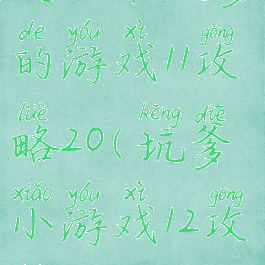 de yóu xì gōng
的游戏11攻
lüè kēng diē
略20(坑爹
xiǎo yóu xì gōng
小游戏12攻